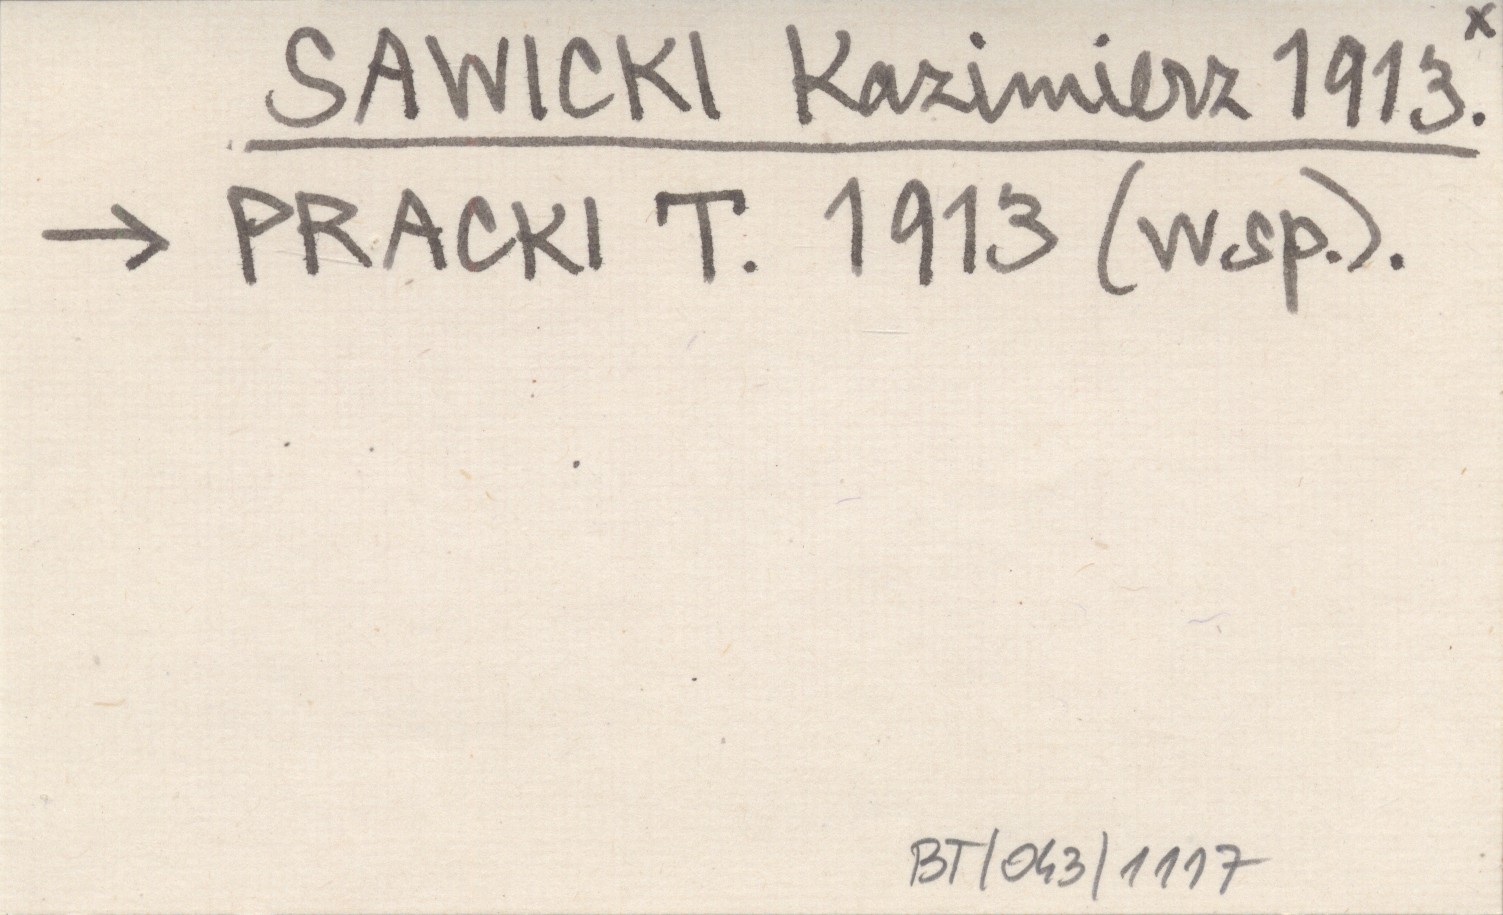 SAWICKI Kazimierz 1913.x
→ PRACKI T. 1913 (wsp.).
BT/043/1117